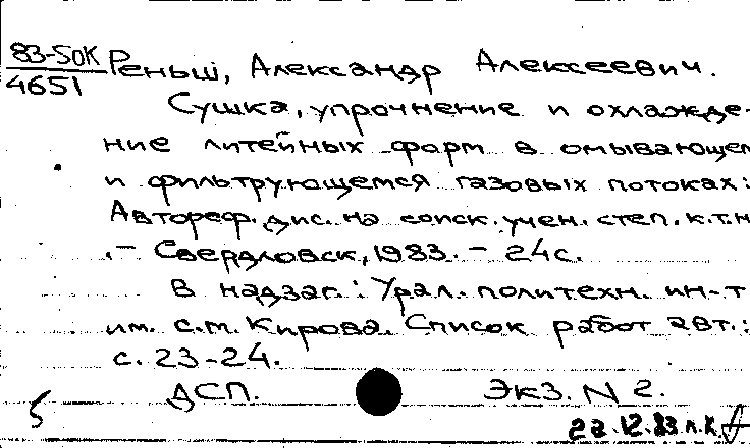 83-5ОК Реньш, Александр Алексеевич.
4651
Сушка, упрочнение и охлажде-
ние литейных форм в омывающем
и фильтрующемся газовых потоках:
Автореф. дис. на соиск. учен. степ. к.т.н
.- Свердловск, 1983. - 24с.
В надзаг.: Урал. политехн. ин-т
им. С.М. Кирова. Список работ авт.:
с. 23-24.
ДСП. Экз. N 2.
5
22.12.83 л.к